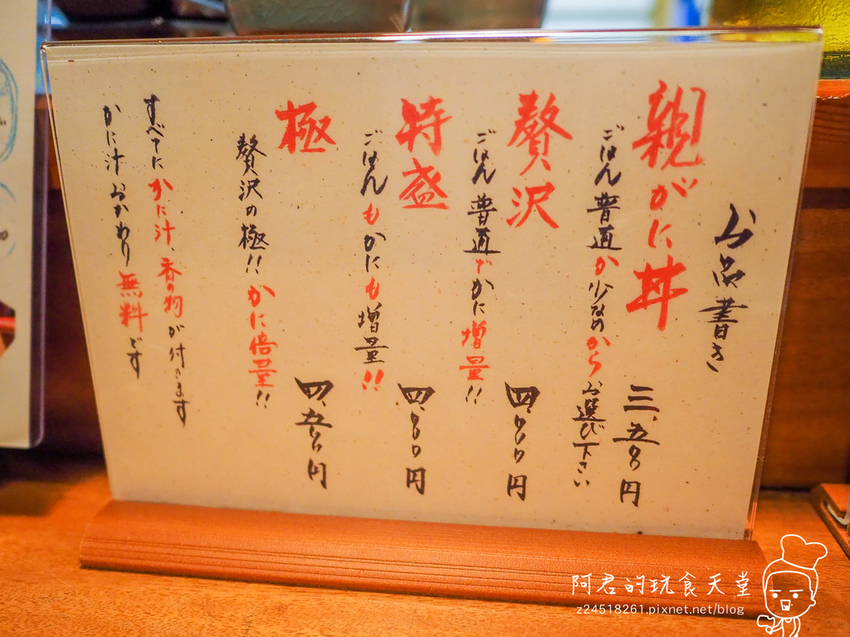 お品書き
親がに丼
三、五〇〇円
ごはん普通か少なめからお選び下さい
贅沢
四、〇〇〇円
ごはん普通でかに増量!!
特盛
四、〇〇〇円
ごはんもかにも増量!!
極
四、五〇〇円
贅沢の極!!かに倍量!!
すべてにかに汁、香の物が付きます
かに汁おかわり無料です
阿君的玩食天堂
z24518261.pixnet.net/blog